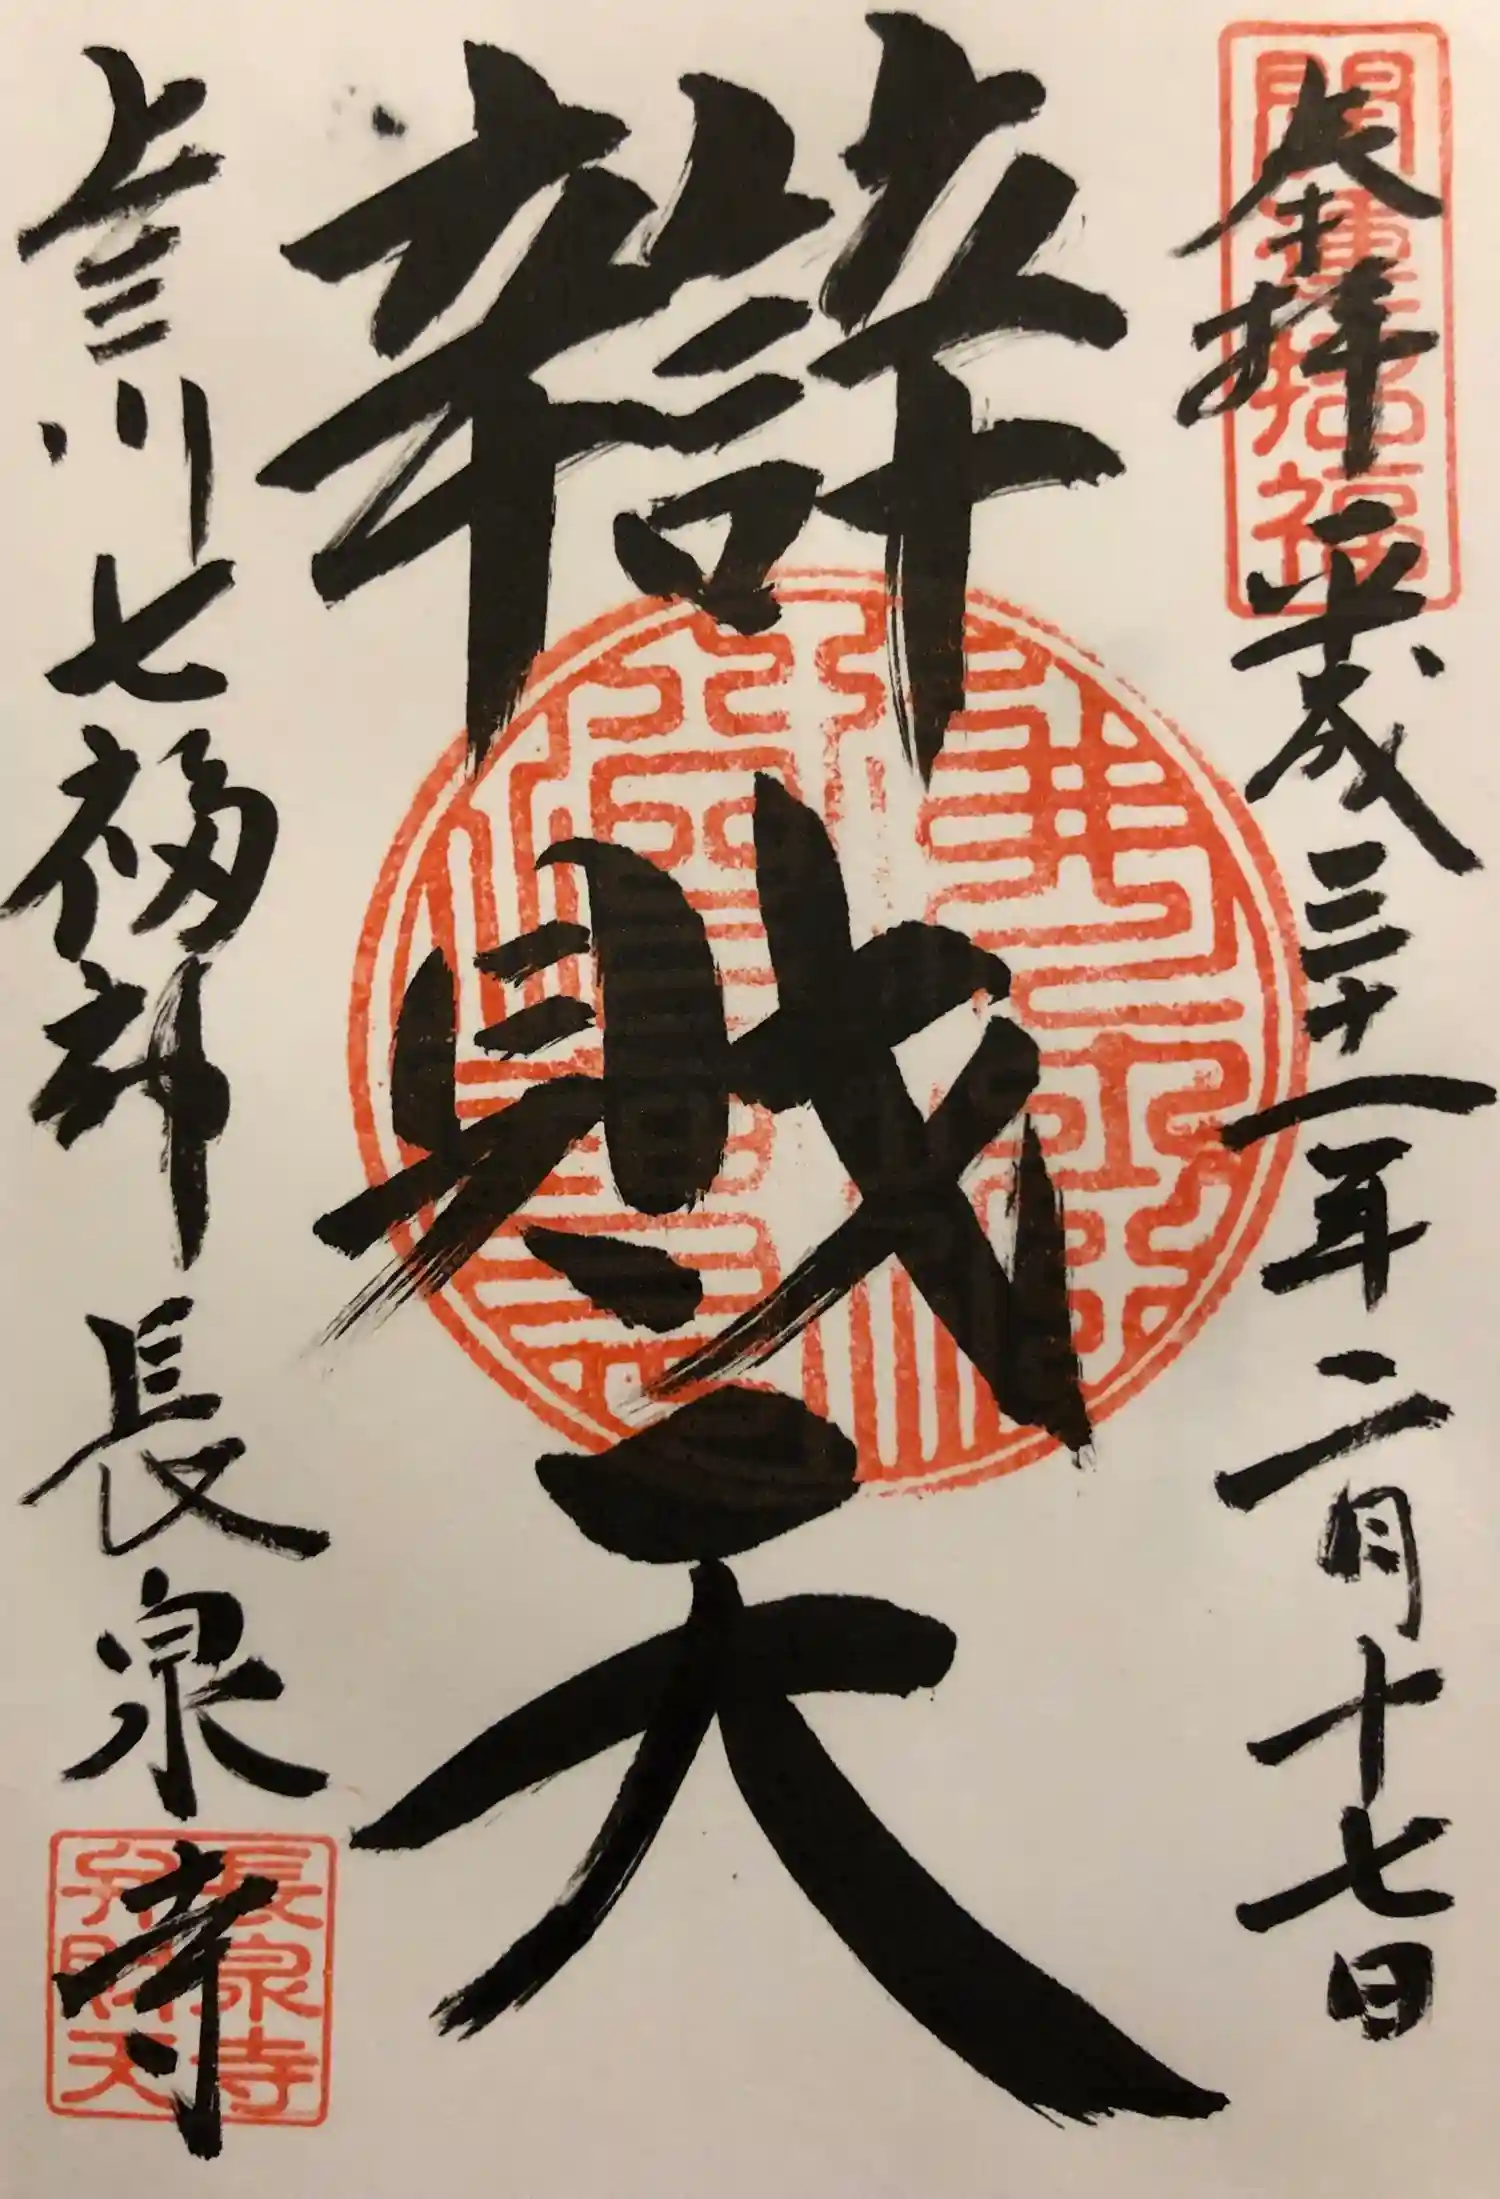 開運招福
奉拝 平成三十一年二月十七日
辯財天
上三川七福神 長泉寺
長泉寺
弁財天